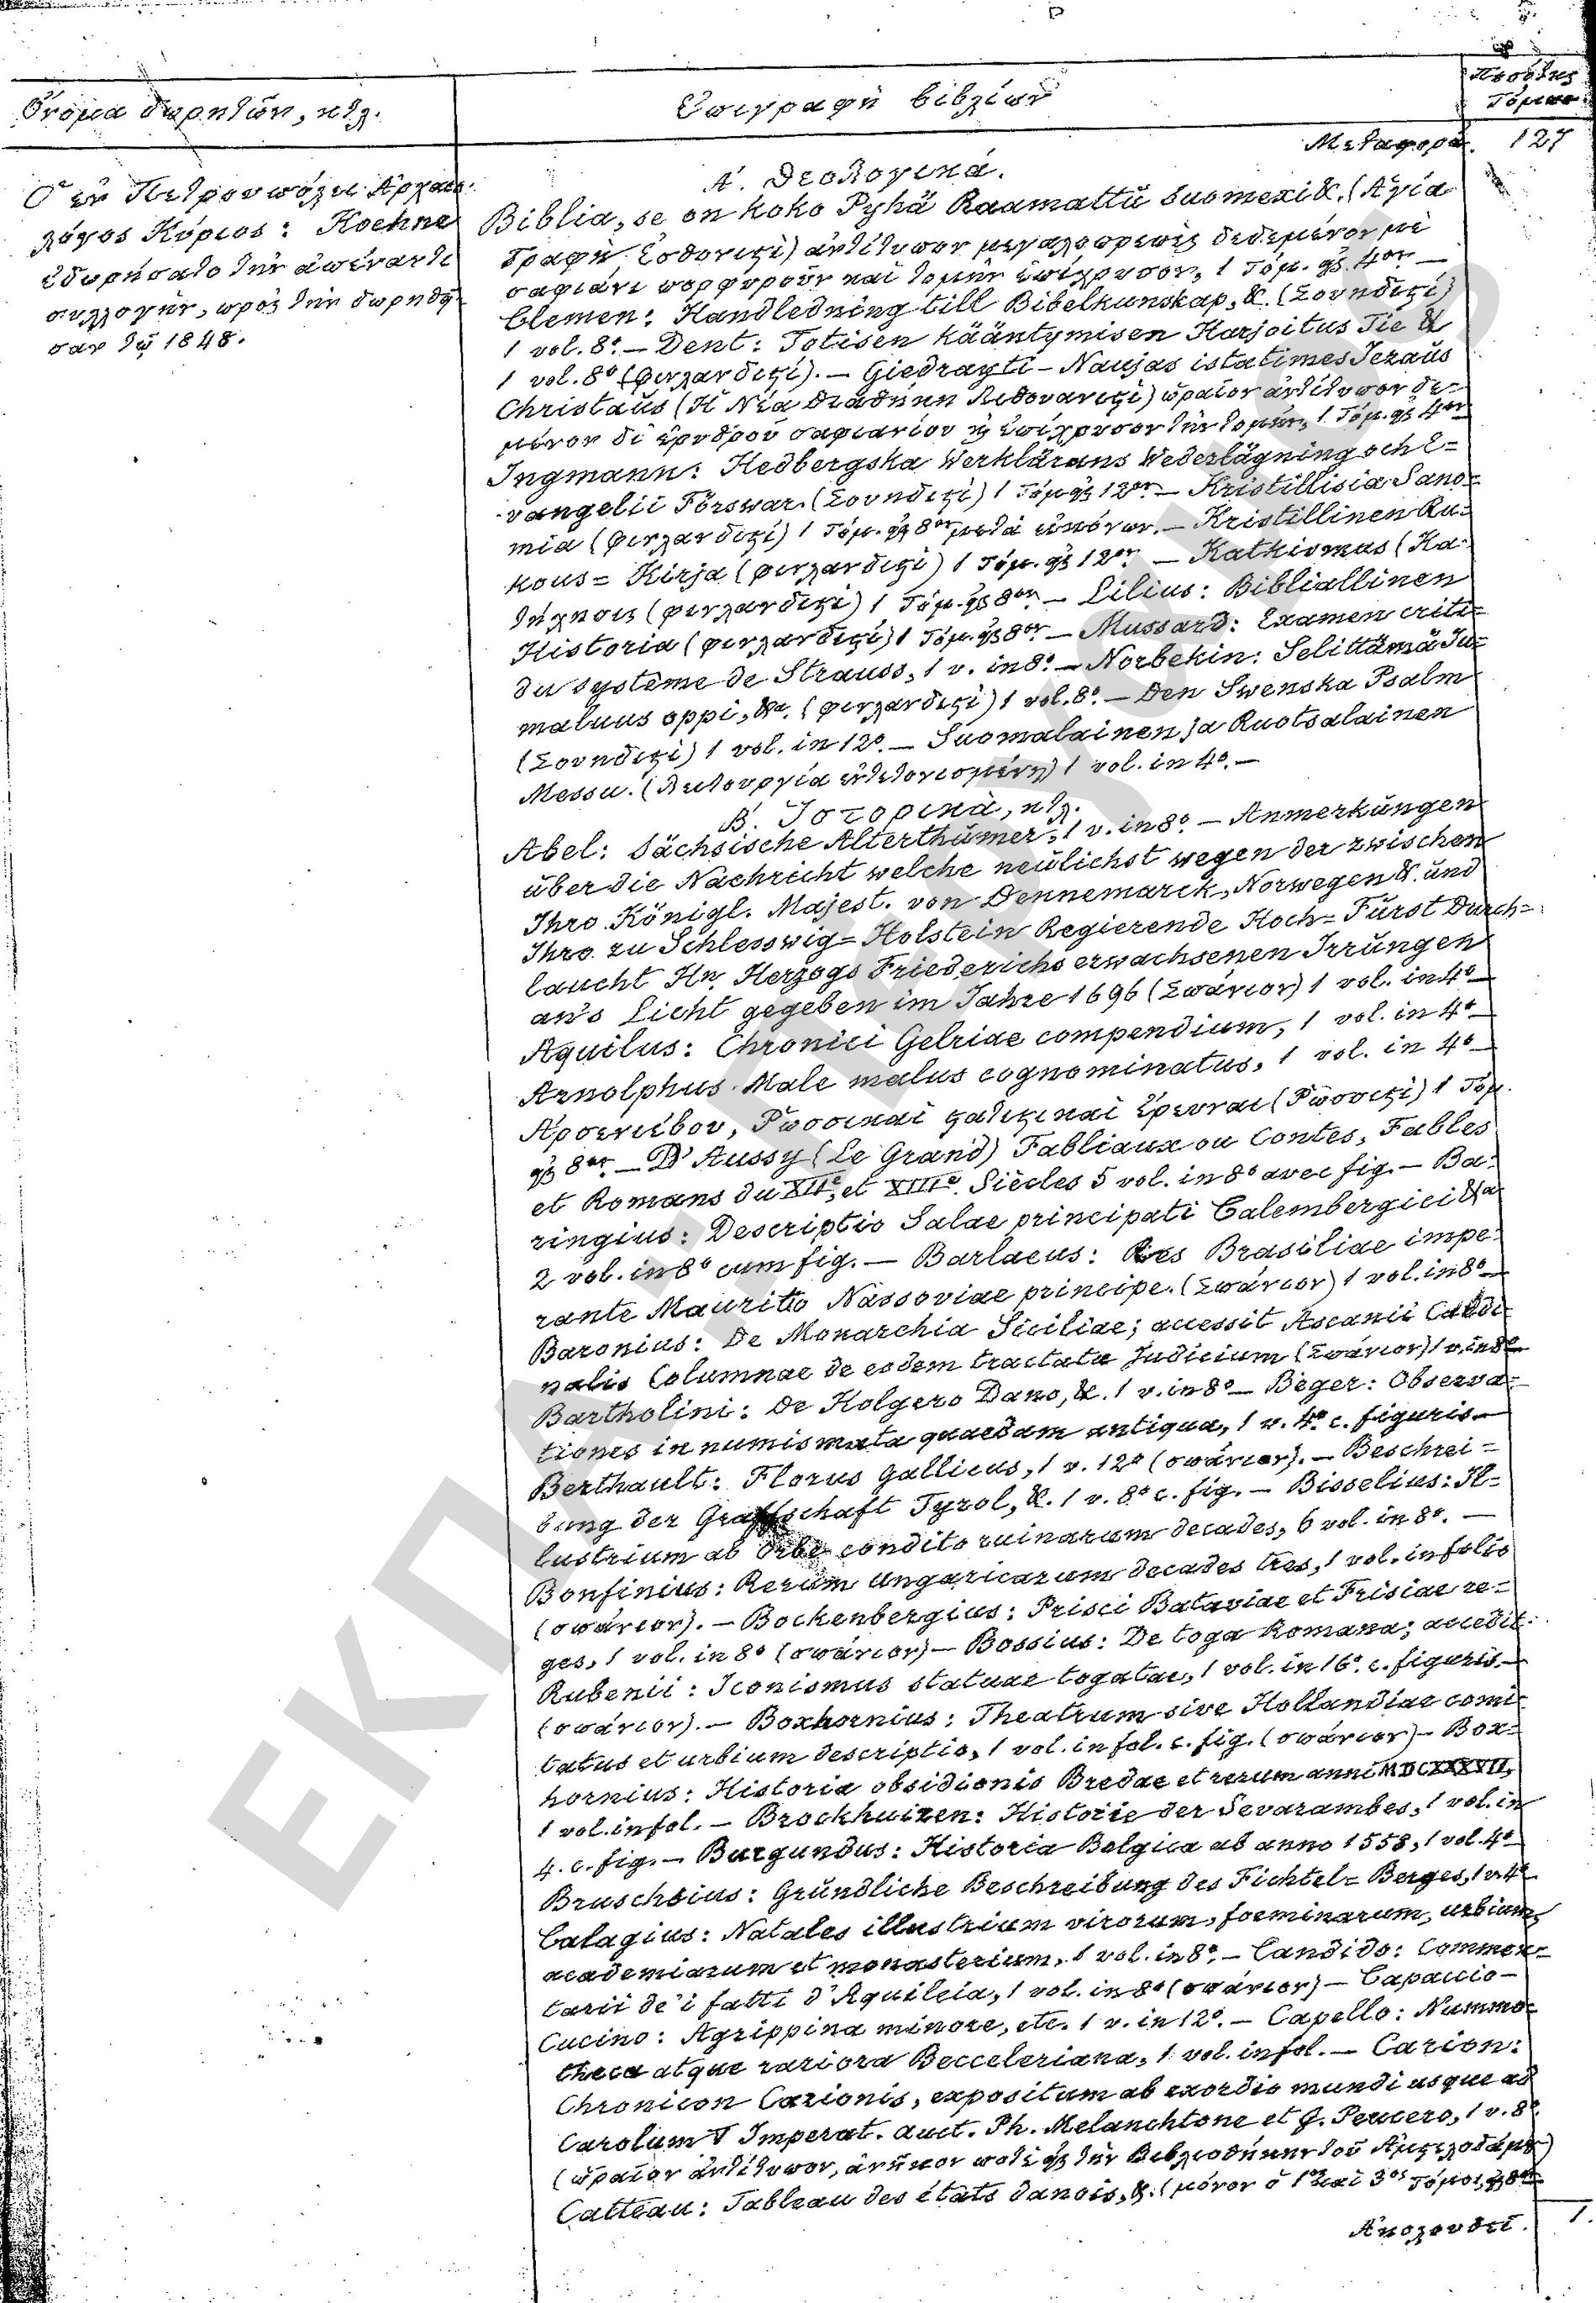 Ὄνομα δωρητῶν, κτλ.
Ἐπιγραφὴ βιβλίων
Ποσότης
Τόμων.
Μεταφορά. 127
Ὁ ἐν Πετρουπόλει Ἀρχαιο-
λόγος Κύριος: Koehne
ἐδωρήσατο τὴν ἀπέναντι
συλλογὴν, πρὸς τὴν δωρηθεῖ-
σαν τῷ 1848.
Α΄. Θεολογικά.
Biblia, se on koko Pyhä Raamattŭ suomexi &. (Ἁγία
Γραφὴ Ἐσθονιστὶ) ἀντίτυπον μεγαλοπρεπὲς δεδεμένον μὲ
σαφιάνι πορφυροῦν καὶ τομὴν ἐπίχρυσον, 1 Τόμ. εἰς 4ον —
Clemen: Handledning till Bibelkunskap, &. (Σουηδιστὶ)
1 vol. 8º. — Dent: Totisen kääntymisen Harjoitus Tie &
1 vol. 8º (φινλανδιστὶ). — Giedrayti — Naujas istatimes Jezaŭs
Christaŭs (Ἡ Νέα Διαθήκη Λιθουανιστὶ) ὡραῖον ἀντίτυπον δε-
μένον δι' ἐρυθροῦ σαφιανίου κ ἐπίχρυσον τὴν τομήν, 1 Τόμ. εἰς 4ον
Ingmann: Hedbergska Werklärans Wederlägning och E=
vangelii Förswar. (Σουηδιστὶ) 1 Τόμ. εἰς 12ον — Kristillisiä Sano=
mia (φινλανδιστὶ) 1 Τόμ. εἰς 8ον μετὰ εἰκόνων. — Kristillinen Ru=
kous= Kirja (φινλανδιστὶ) 1 Τόμ. εἰς 12ον — Katkismus (Κα-
τήχησις (φινλανδιστὶ) 1 Τόμ. εἰς 8ον — Lilius: Bibliallinen
Historia (φινλανδιστὶ) 1 Τόμ. εἰς 8ον — Mussard: Examen criti=
du système de Strauss, 1 v. in 8º. — Norbekin: Selittämä Ju=
maluus oppi, &a. (φινλανδιστὶ) 1 vol. 8º. — Den Swenska Psalm
(Σουηδιστὶ) 1 vol. in 12º. — Suomalainen ja Ruotsalainen
Messu. (Λειτουργία ἐντετονισμένη) 1 vol. in 4º. —
Β΄. Ἱστορικὰ, κτλ.
Abel: Sächsische Alterthümer, 1 v. in 8º. — Anmerkŭngen
über die Nachricht welche neŭlichst wegen der zwischen
Ihro Königl. Majest. von Dennemarck, Norwegen &. ŭnd
Ihro zu Schlesswig= Holstein Regierende Hoch= Fürst Durch=
laucht Hn. Herzogs Friederichs erwachsenen Irrŭngen
an's Licht gegeben im Jahre 1696 (Σπάνιον) 1 vol. in 4º —
Aquilus: Chronici Gelriae compendium, 1 vol. in 4º —
Arnolphus Male malus cognominatus, 1 vol. in 4º —
Ἀρσενιέβου, Ῥωσσικαὶ στατιστικαὶ Ἔρευναι (Ῥωσσιστὶ) 1 Τόμ.
εἰς 8ον — D'Aussy (Le Grand) Fabliaux ou Contes, Fables
et Romans du XIIe, et XIIIe. Siècles 5 vol. in 8º avec fig. — Ba-
ringius: Descriptio Salae principati Calembergici &a
2 vol. in 8º cum fig. — Barlaeus: Res Brasiliae impe-
rante Mauritio Nassoviae principe. (Σπάνιον) 1 vol. in 8º —
Baronius: De Monarchia Siciliae; accessit Ascanii Cardi-
nalis Columnae de eodem tractatu Judicium (Σπάνιον) 1 v. in 8º
Bartholini: De Holgero Dano, &. 1 v. in 8º — Beger: Observa=
tiones in numismata quaedam antiqua, 1 v. 4º. c. figuris —
Berthault: Florus Gallicus, 1 v. 12º (σπάνιον). — Beschrei=
bung der Graffschaft Tyrol, &. 1 v. 8º c. fig. — Bisselius: Il=
lustrium ab Orbe condito ruinarum decades, 6 vol. in 8º. —
Bonfinius: Rerum Ungaricarum decades tres, 1 vol. in folio
(σπάνιον). — Bockenbergius: Prisci Bataviae et Frisiae re=
ges, 1 vol. in 8º (σπάνιον) — Bossius: De toga Romana; accedit
Rubenii: Iconismus statuae togatae, 1 vol. in 16º. c. figuris —
(σπάνιον). — Boxhornius: Theatrum sive Hollandiae comi-
tatus et urbium descriptio, 1 vol. in fol. c. fig. (σπάνιον) — Box=
hornius: Historia obsidionis Bredae et rerum anni MDCXXXVII,
1 vol. in fol. — Brockhuizen: Historie der Sevarambes, 1 vol. in
4. c. fig. — Burgundus: Historia Belgica ab anno 1558, 1 vol. 4º
Bruschius: Gründliche Beschreibung des Fichtel= Berges, 1 v. 4º
Calagius: Natales illustrium virorum, foeminarum, urbium,
academiarum et monasterium, 1 vol. in 8º. — Candido: Commen-
tarii de'i fatti d'Aquileia, 1 vol. in 8º (σπάνιον) — Capaccio —
Cucino: Agrippina minore, etc. 1 v. in 12º. — Capello: Nummo-
theca atque rariora Becceleriana, 1 vol. in fol. — Carion:
Chronicon Carionis, expositum ab exordio mundi usque ad
Carolum V Imperat. auct. Ph. Melanchtone et G. Peucero, 1 v. 8º.
(ὡραῖον ἀντίτυπον, ἀνῆκον ποτὲ εἰς τὴν Βιβλιοθήκην τοῦ Ἀμστελοδάμου)
Catteau: Tableau des états danois, &. (μόνον ὁ 1ος καὶ 3ος Τόμοι, εἰς 8ον
Ἀκολουθεῖ.